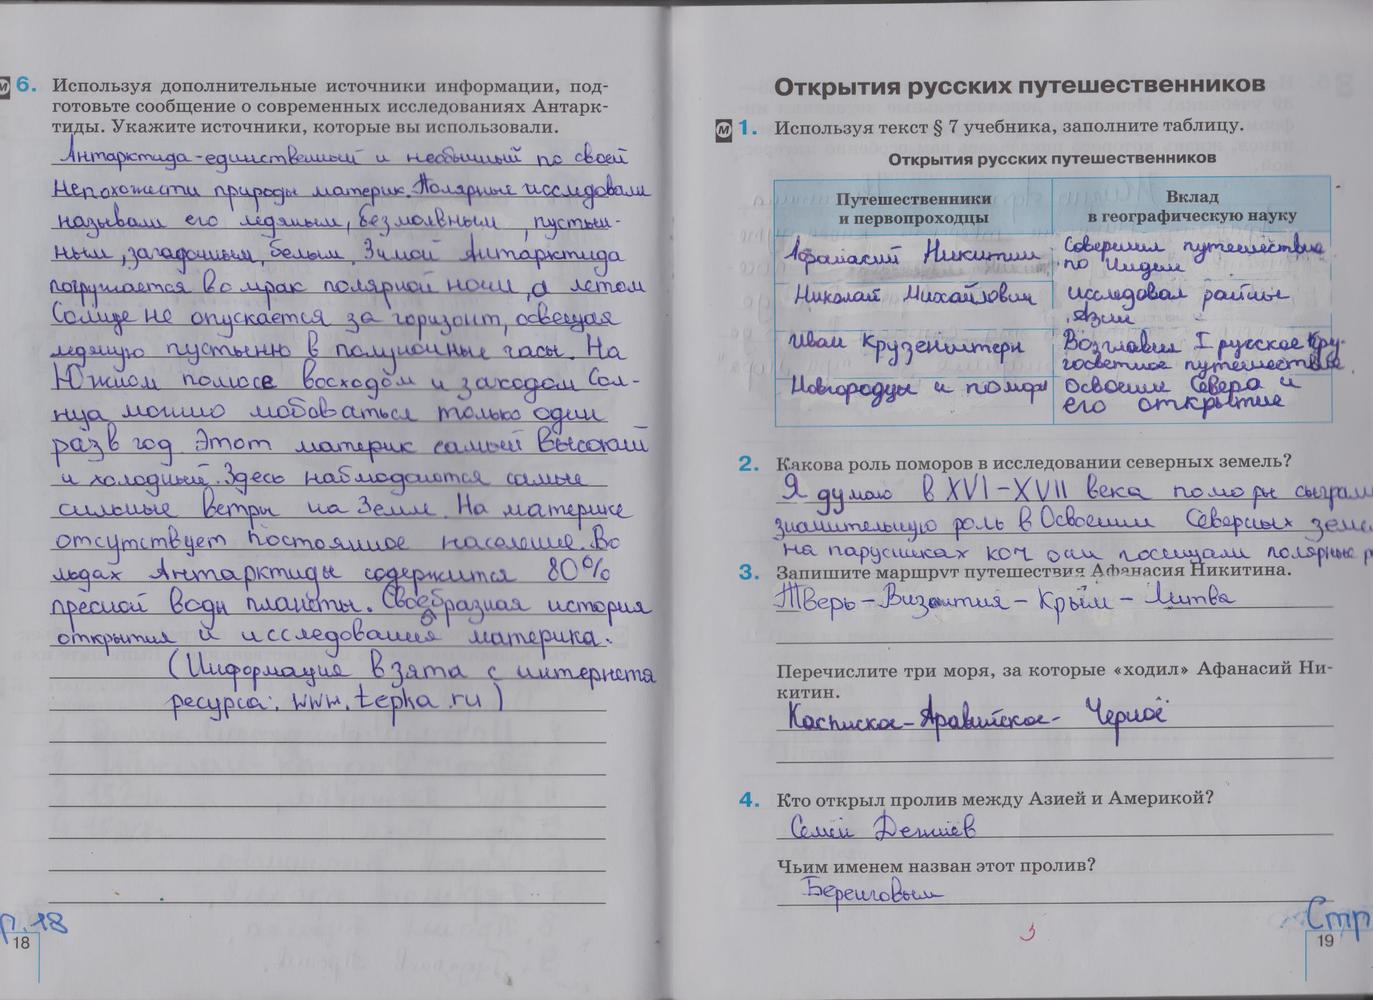 6. Используя дополнительные источники информации, под-
готовьте сообщение о современных исследованиях Антарк-
тиды. Укажите источники, которые вы использовали.
Антарктида-единственный и необычный по своей
непохожести природы материк. Полярные исследовали
называли его ледяным, безмолвным, пустын-
ным, загадочным, белым. Зимой Антарктида
погружается во мрак полярной ночи, а летом
Солнце не опускается за горизонт, освещая
ледяную пустынню в полуночные часы. На
Южном полюсе восходом и заходом Сол-
нца можно любоваться только один
раз в год. Этот материк самый высокий
и холодный. Здесь наблюдаются самые
сильные ветры на Земле. На материке
отсутствует постоянное население. Во
льдах Антарктиды содержится 80%
пресной воды планеты. Своеобразная история
открытия и исследования материка.
(Информация взята с интернета
ресурса: www.tepka.ru)
р.18
18
Открытия русских путешественников
М 1. Используя текст § 7 учебника, заполните таблицу.
Открытия русских путешественников
Путешественники
и первопроходцы
Вклад
в географическую науку
Афанасий Никитин
Совершил путешествие
по Индии
Николай Михайлович
Исследовал районы
Азии
Иван Крузенштерн
Возглавил I русское кру-
госветное путешествие
Новгородцы и поморы
Освоение Севера и
его открытие
2. Какова роль поморов в исследовании северных земель?
Я думаю в XVI-XVII века поморы сыграли
значительную роль в Освоении Северных земе
на парусниках коч они посещали полярные р
3. Запишите маршрут путешествия Афанасия Никитина.
Тверь-Византия-Крым-Литва
Перечислите три моря, за которые «ходил» Афанасий Ни-
китин.
Каспиское-Аравийское- Черное
4. Кто открыл пролив между Азией и Америкой?
Семён Дежнёв
Чьим именем назван этот пролив?
Беренговым
3
Стр
19